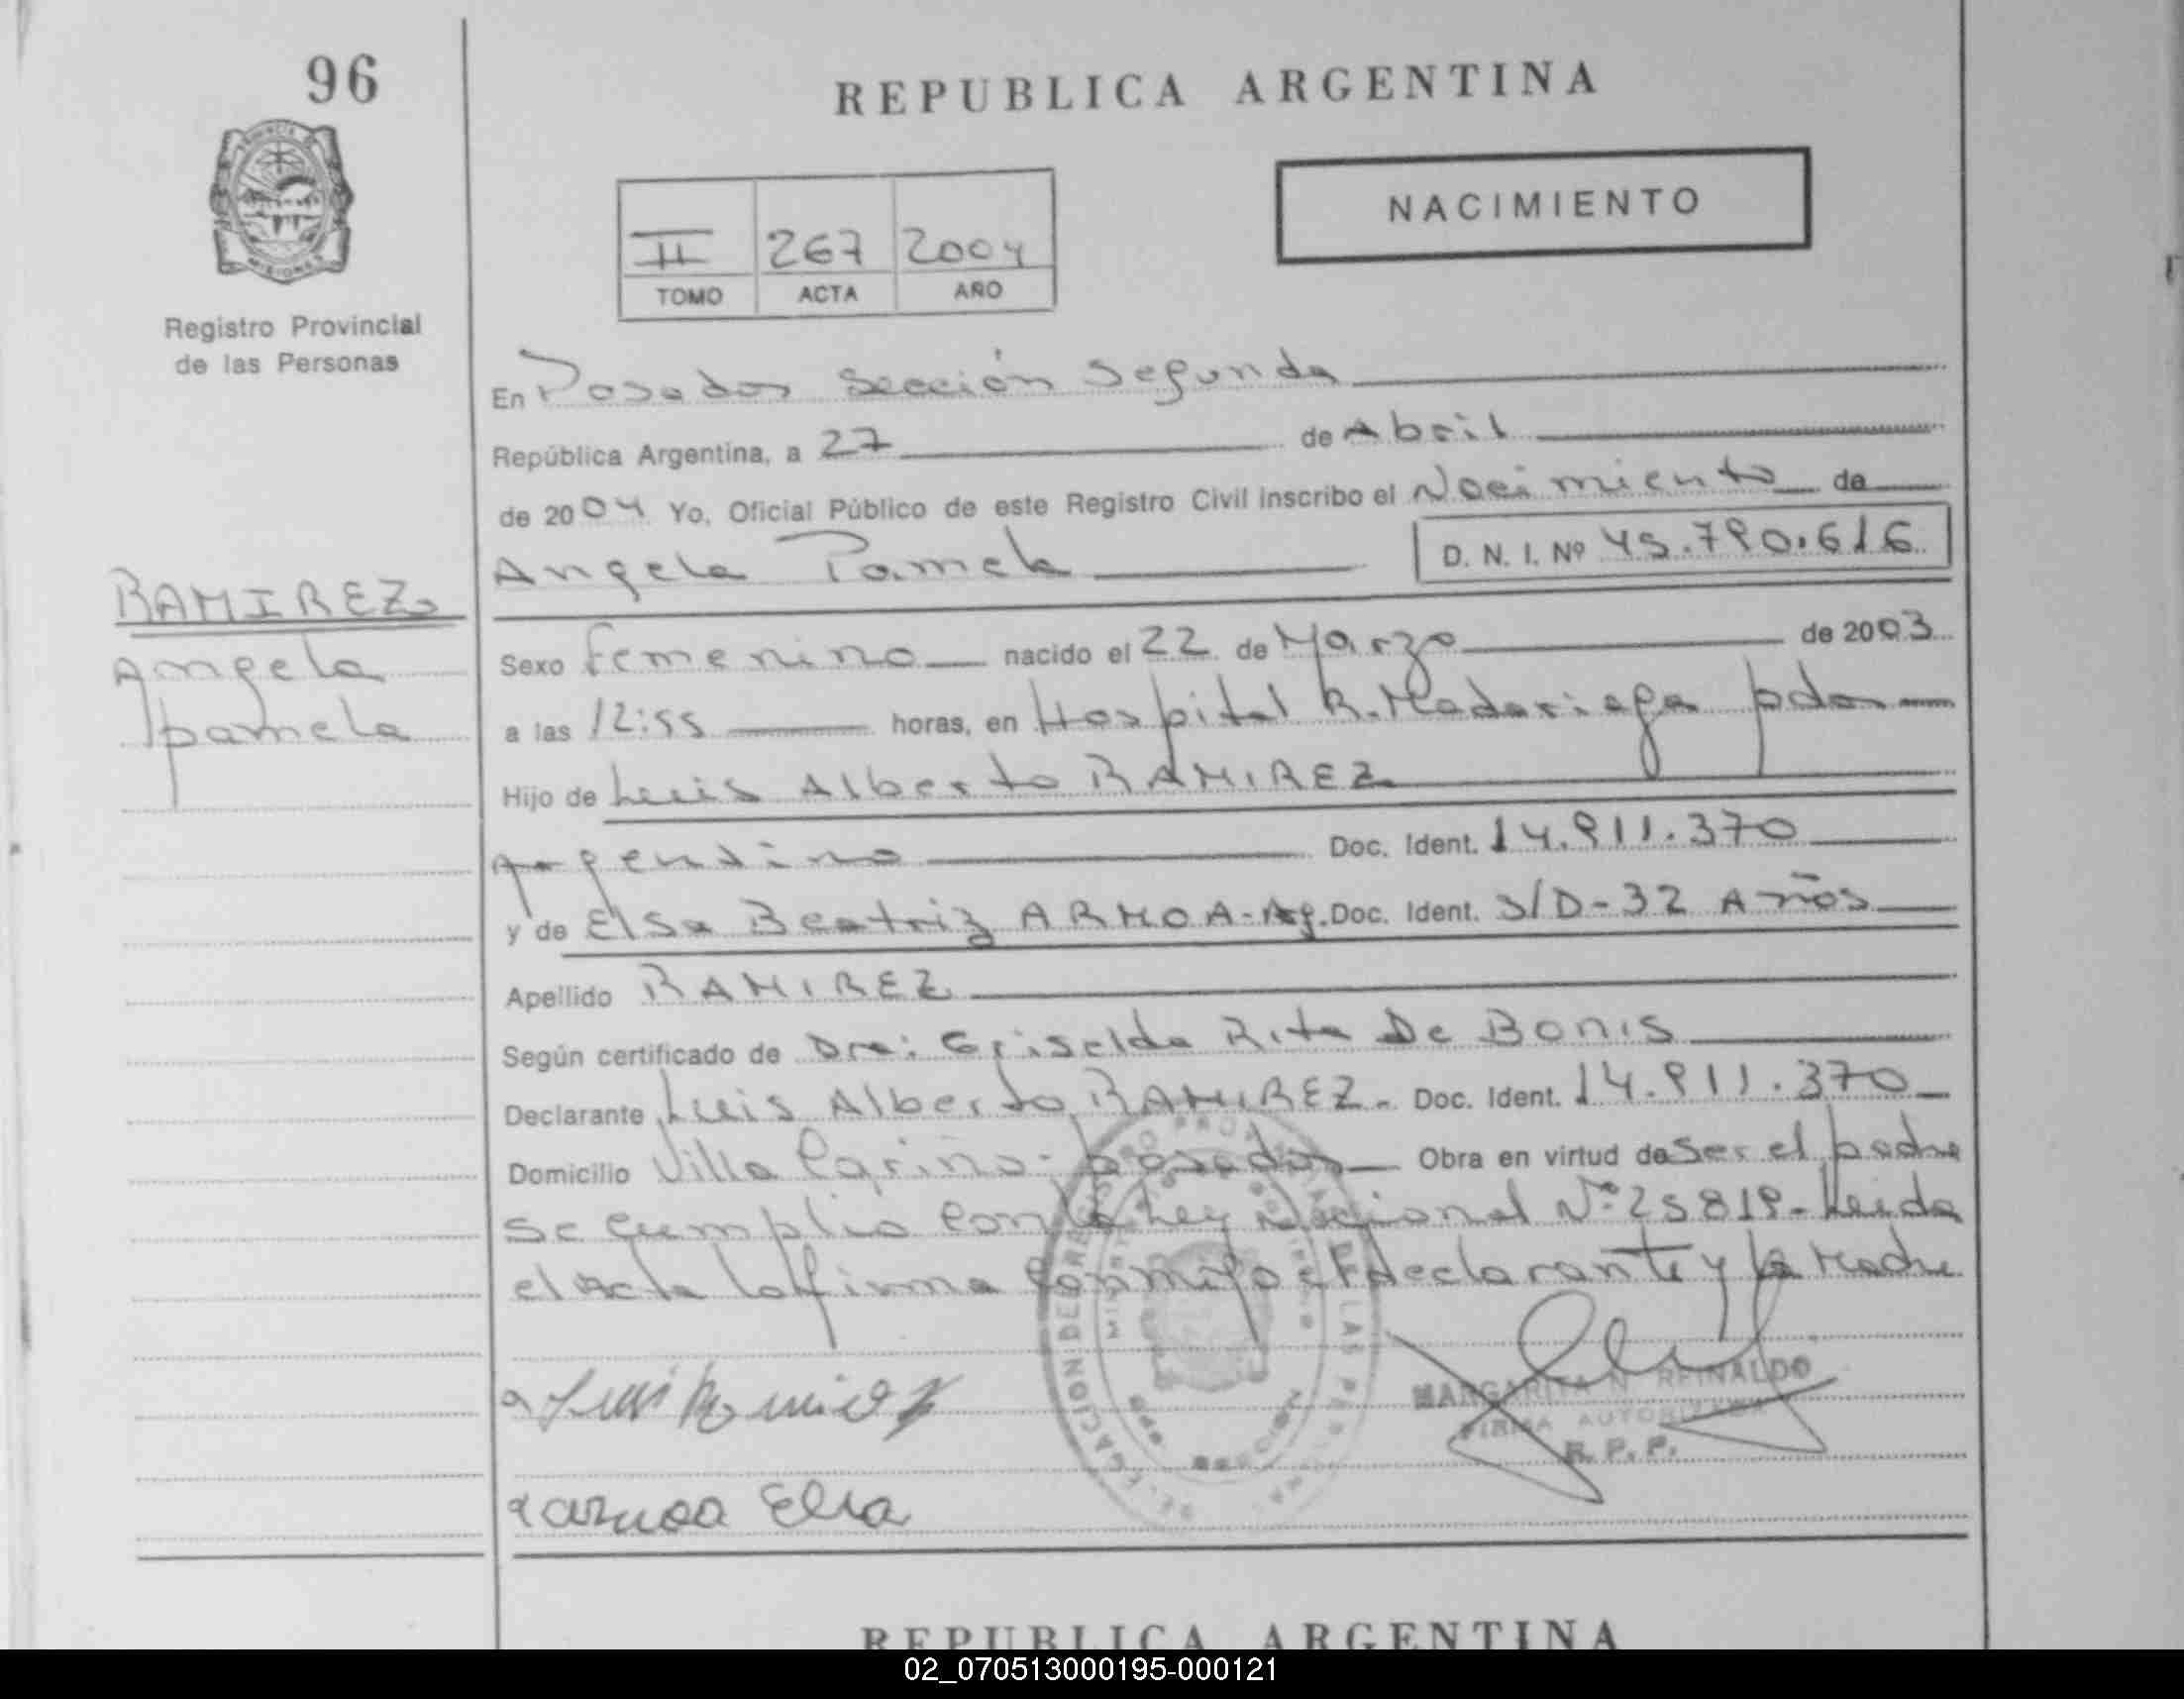 96
REPUBLICA ARGENTINA
NACIMIENTO
II 267 2004
TOMO ACTA AÑO
Registro Provincial
de las Personas
En Posadas Sección Segunda
República Argentina, a 27 de Abril
de 2004 Yo, Oficial Público de este Registro Civil inscribo el Nacimiento de
Angela Pamela D. N. I. Nº 45.790.616
RAMIREZ
Angela
pamela
Sexo femenino nacido el 22 de Marzo de 2003
a las 12:55 horas, en Hospital R. Madariaga pdas
Hijo de Luis Alberto RAMIREZ
Argentino Doc. Ident. 14.911.370
y de Elsa Beatriz ARMOA-Arg. Doc. Ident. S/D-32 Años
Apellido RAMIREZ
Según certificado de Dra: Griselda Rita De Bonis
Declarante Luis Alberto RAMIREZ. Doc. Ident. 14.911.370
Domicilio Villa Cariño- posadas Obra en virtud de Ser el padre
se cumplio con la Ley Nacional Nº 25819- Leida
el Acta la firma conmigo el declarante y la Madre
Luis Ramirez
MARGARITA N. REINALDO
FIRMA AUTORIZADA
R. P. P.
armoa Elsa
REPUBLICA ARGENTINA
02_070513000195-000121